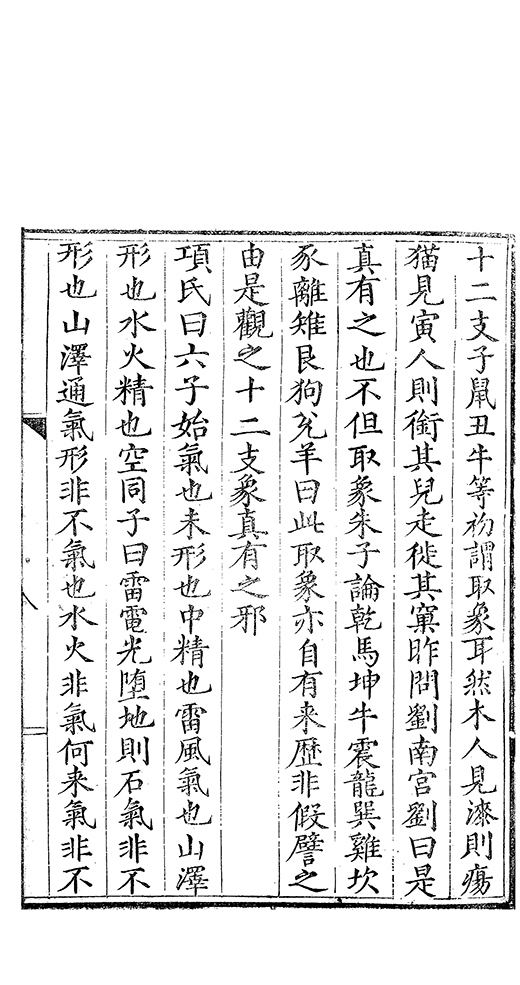 十二支子鼠丑牛等初謂取象耳然木人見漆則瘍
猫見寅人則銜其兒走徙其窠昨問劉南宮劉曰是
真有之也不但取象朱子論乾馬坤牛震龍巽雞坎
豕離雉艮狗兊羊曰此取象亦自有来歷非假譬之
由是觀之十二支象真有之邪
項氏曰六子始氣也未形也中精也雷風氣也山澤
形也水火精也空同子曰雷電光墮地則石氣非不
形也山澤通氣形非不氣也水火非氣何来氣非不
八